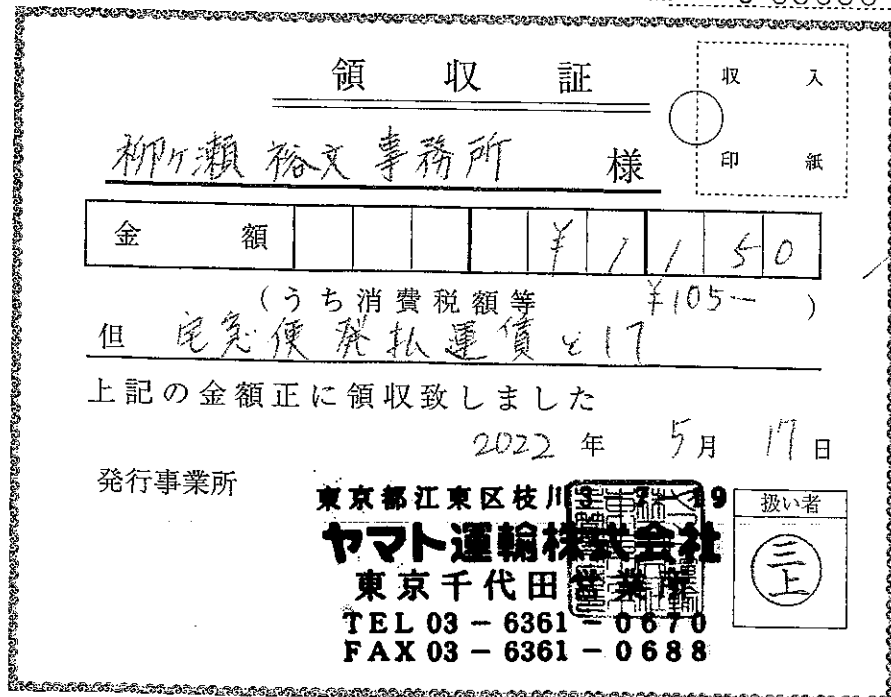 領収証
収入
印紙
柳ヶ瀬 裕文 事務所 様
金額 ¥1150
(うち消費税額等 ¥105- )
但 宅急便 発払運賃として
上記の金額正に領収致しました
2022年 5月 17日
発行事業所
東京都江東区枝川3-7-19
ヤマト運輸株式会社
東京千代田営業所
TEL 03-6361-0670
FAX 03-6361-0688
扱い者
三上